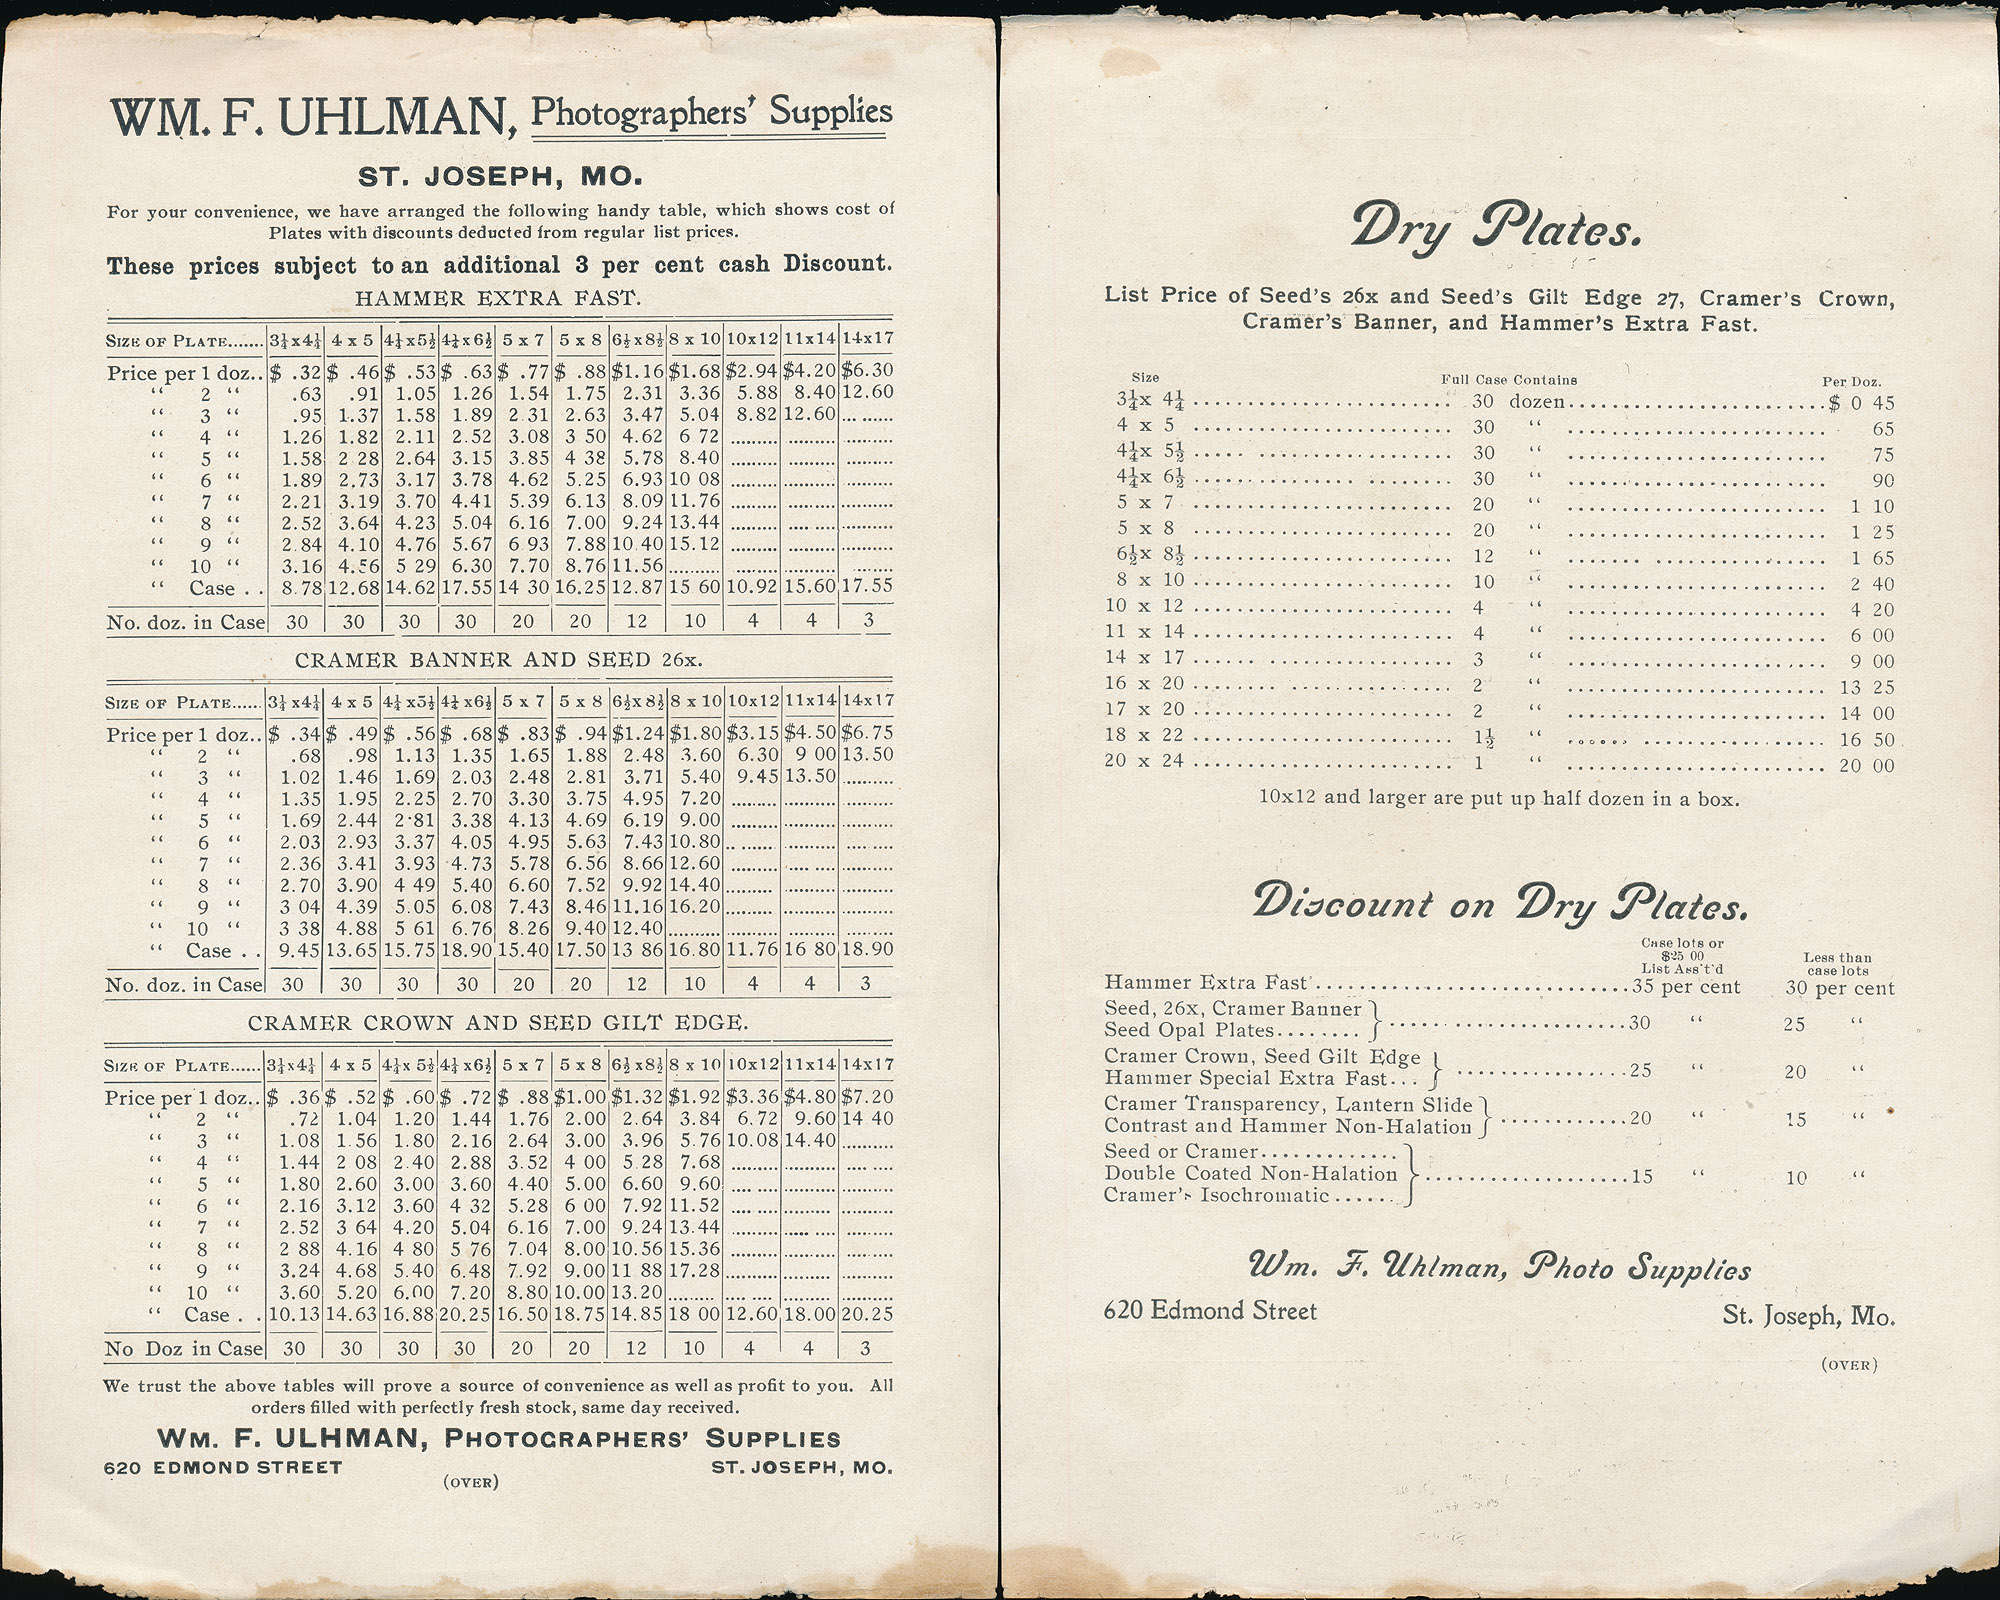 WM. F. UHLMAN, Photographers' Supplies
ST. JOSEPH, MO.
For your convenience, we have arranged the following handy table, which shows cost of
Plates with discounts deducted from regular list prices.
These prices subject to an additional 3 per cent cash Discount.
HAMMER EXTRA FAST.
SIZE OF PLATE....... 3¼x4¼ 4 x 5 4¼x5½ 4¼x6½ 5 x 7 5 x 8 6½x8½ 8 x 10 10x12 11x14 14x17
Price per 1 doz.. $ .32 $ .46 $ .53 $ .63 $ .77 $ .88 $1.16 $1.68 $2.94 $4.20 $6.30
“ 2 “ .63 .91 1.05 1.26 1.54 1.75 2.31 3.36 5.88 8.40 12.60
“ 3 “ .95 1.37 1.58 1.89 2.31 2.63 3.47 5.04 8.82 12.60 .........
“ 4 “ 1.26 1.82 2.11 2.52 3.08 3 50 4.62 6 72 ......... ......... .........
“ 5 “ 1.58 2 28 2.64 3.15 3.85 4 38 5.78 8.40 ......... ......... .........
“ 6 “ 1.89 2.73 3.17 3.78 4.62 5.25 6.93 10 08 ......... ......... .........
“ 7 “ 2.21 3.19 3.70 4.41 5.39 6.13 8.09 11.76 ......... ......... .........
“ 8 “ 2.52 3.64 4.23 5.04 6.16 7.00 9.24 13.44 ......... ......... .........
“ 9 “ 2.84 4.10 4.76 5.67 6 93 7.88 10.40 15.12 ......... ......... .........
“ 10 “ 3.16 4.56 5 29 6.30 7.70 8.76 11.56 ......... ......... ......... .........
“ Case . . 8.78 12.68 14.62 17.55 14 30 16.25 12.87 15 60 10.92 15.60 17.55
No. doz. in Case 30 30 30 30 20 20 12 10 4 4 3
CRAMER BANNER AND SEED 26x.
SIZE OF PLATE...... 3¼x4¼ 4 x 5 4¼x5½ 4¼x6½ 5 x 7 5 x 8 6½x8½ 8 x 10 10x12 11x14 14x17
Price per 1 doz.. $ .34 $ .49 $ .56 $ .68 $ .83 $ .94 $1.24 $1.80 $3.15 $4.50 $6.75
“ 2 “ .68 .98 1.13 1.35 1.65 1.88 2.48 3.60 6.30 9 00 13.50
“ 3 “ 1.02 1.46 1.69 2.03 2.48 2.81 3.71 5.40 9.45 13.50 .........
“ 4 “ 1.35 1.95 2.25 2.70 3.30 3.75 4.95 7.20 ......... ......... .........
“ 5 “ 1.69 2.44 2·81 3.38 4.13 4.69 6.19 9.00 ......... ......... .........
“ 6 “ 2.03 2.93 3.37 4.05 4.95 5.63 7.43 10.80 ......... ......... .........
“ 7 “ 2.36 3.41 3.93 4.73 5.78 6.56 8.66 12.60 ......... ......... .........
“ 8 “ 2.70 3.90 4 49 5.40 6.60 7.52 9.92 14.40 ......... ......... .........
“ 9 “ 3 04 4.39 5.05 6.08 7.43 8.46 11.16 16.20 ......... ......... .........
“ 10 “ 3 38 4.88 5 61 6.76 8.26 9.40 12.40 ......... ......... ......... .........
“ Case . . 9.45 13.65 15.75 18.90 15.40 17.50 13 86 16.80 11.76 16 80 18.90
No. doz. in Case 30 30 30 30 20 20 12 10 4 4 3
CRAMER CROWN AND SEED GILT EDGE.
SIZE OF PLATE...... 3¼x4¼ 4 x 5 4¼x 5½ 4¼ x6½ 5 x 7 5 x 8 6½ x8½ 8 x 10 10x12 11x14 14x17
Price per 1 doz.. $ .36 $ .52 $ .60 $ .72 $ .88 $1.00 $1.32 $1.92 $3.36 $4.80 $7.20
“ 2 “ .72 1.04 1.20 1.44 1.76 2.00 2.64 3.84 6.72 9.60 14 40
“ 3 “ 1.08 1.56 1.80 2.16 2.64 3.00 3.96 5.76 10.08 14.40 .........
“ 4 “ 1.44 2 08 2.40 2.88 3.52 4 00 5.28 7.68 ......... ......... .........
“ 5 “ 1.80 2.60 3.00 3.60 4.40 5.00 6.60 9.60 ......... ......... .........
“ 6 “ 2.16 3.12 3.60 4 32 5.28 6 00 7.92 11.52 ......... ......... .........
“ 7 “ 2.52 3 64 4.20 5.04 6.16 7.00 9.24 13.44 ......... ......... .........
“ 8 “ 2 88 4.16 4 80 5 76 7.04 8.00 10.56 15.36 ......... ......... .........
“ 9 “ 3.24 4.68 5.40 6.48 7.92 9.00 11 88 17.28 ......... ......... .........
“ 10 “ 3.60 5.20 6.00 7.20 8.80 10.00 13.20 ......... ......... ......... .........
“ Case . . 10.13 14.63 16.88 20.25 16.50 18.75 14.85 18 00 12.60 18.00 20.25
No Doz in Case 30 30 30 30 20 20 12 10 4 4 3
We trust the above tables will prove a source of convenience as well as profit to you. All
orders filled with perfectly fresh stock, same day received.
WM. F. ULHMAN, PHOTOGRAPHERS' SUPPLIES
620 EDMOND STREET ST. JOSEPH, MO.
(OVER)
Dry Plates.
List Price of Seed's 26x and Seed's Gilt Edge 27, Cramer's Crown,
Cramer's Banner, and Hammer's Extra Fast.
Size Full Case Contains Per Doz.
3¼x 4¼ .............................. 30 dozen..............................$ 0 45
4 x 5 .............................. 30 “ .............................. 65
4¼x 5½ .............................. 30 “ .............................. 75
4¼x 6½ .............................. 30 “ .............................. 90
5 x 7 .............................. 20 “ .............................. 1 10
5 x 8 .............................. 20 “ .............................. 1 25
6½x 8½ .............................. 12 “ .............................. 1 65
8 x 10 .............................. 10 “ .............................. 2 40
10 x 12 .............................. 4 “ .............................. 4 20
11 x 14 .............................. 4 “ .............................. 6 00
14 x 17 .............................. 3 “ .............................. 9 00
16 x 20 .............................. 2 “ .............................. 13 25
17 x 20 .............................. 2 “ .............................. 14 00
18 x 22 .............................. 1½ “ .............................. 16 50
20 x 24 .............................. 1 “ .............................. 20 00
10x12 and larger are put up half dozen in a box.
Discount on Dry Plates.
Case lots or
$25 00 Less than
List Ass't'd case lots
Hammer Extra Fast..............................35 per cent 30 per cent
Seed, 26x, Cramer Banner
Seed Opal Plates........ } ....................30 “ 25 “
Cramer Crown, Seed Gilt Edge
Hammer Special Extra Fast... } ................25 “ 20 “
Cramer Transparency, Lantern Slide
Contrast and Hammer Non-Halation } ............20 “ 15 “
Seed or Cramer.............
Double Coated Non-Halation } ....................15 “ 10 “
Cramer's Isochromatic ......
Wm. F. Uhlman, Photo Supplies
620 Edmond Street St. Joseph, Mo.
(OVER)